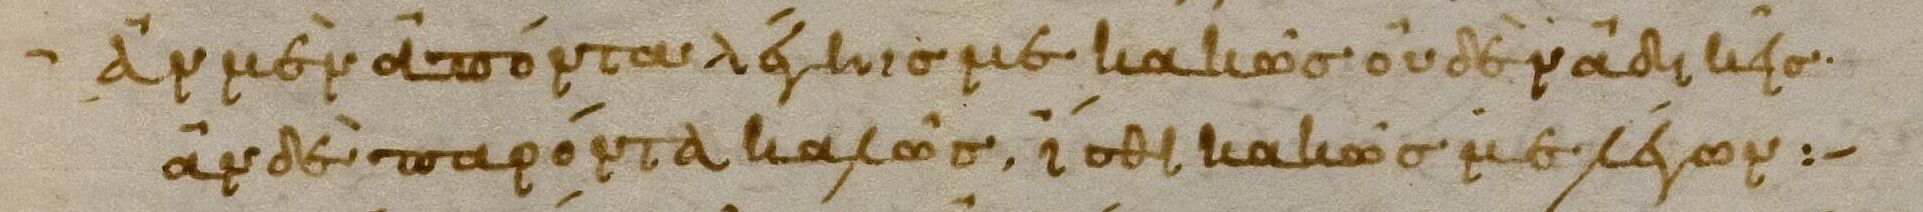 ἂν μὲν ἀπόντα λέγηις με κακῶς οὐδὲν ἀδικεῖς·
ἂν δὲ παρόντα καλῶς, ἴσθι κακῶς με λέγων :-